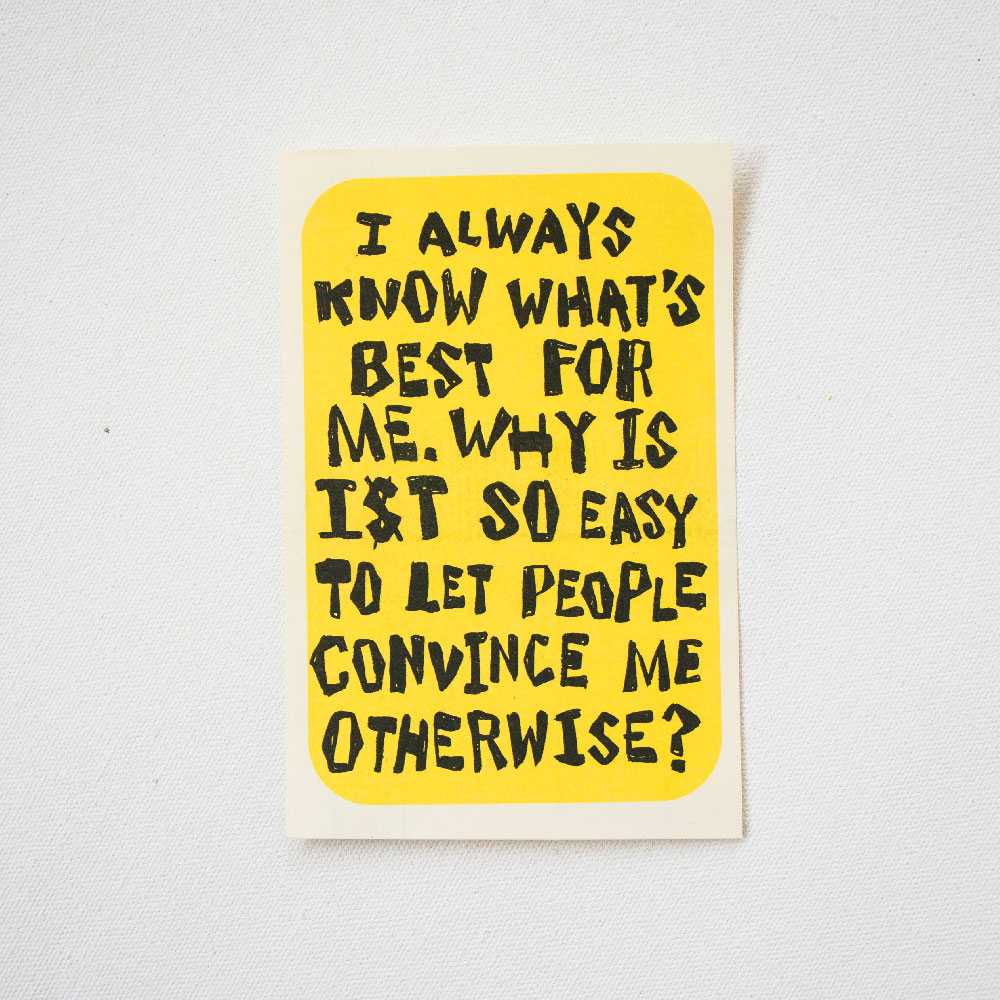 I ALWAYS
KNOW WHAT'S
BEST FOR
ME. WHY IS
I$T SO EASY
TO LET PEOPLE
CONVINCE ME
OTHERWISE?